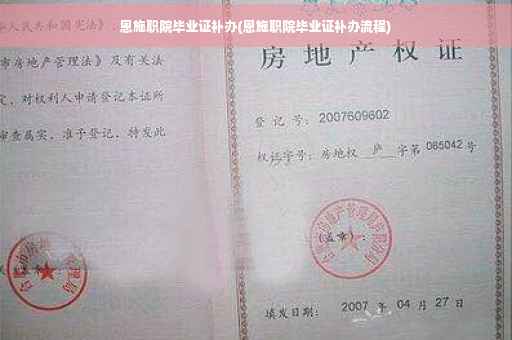 恩施职院毕业证补办(恩施职院毕业证补办流程)
人民共和国宪法》、
市房地产管理法》及有关法
定，对权利人申请登记本证所
审查属实，准予登记，特发此
房地产权证
登记号：2007609602
权证字号：房地权 庐 字第 085042 号
(盖章)：
填发日期：2007 年 04 月 27 日